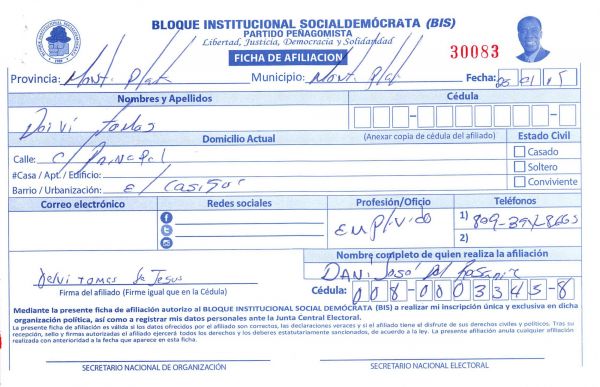 BLOQUE INSTITUCIONAL SOCIALDEMÓCRATA (BIS)
PARTIDO PEÑAGOMISTA
Libertad, Justicia, Democracia y Solidaridad
FICHA DE AFILIACION
30083
Provincia: Mont. Plat Municipio: Mont. Plat Fecha: 25/01/15
Nombres y Apellidos Cédula
Deivi Tomas
Domicilio Actual (Anexar copia de cédula del afiliado) Estado Civil
Calle: C/ Principal
#Casa / Apt. / Edificio:
Barrio / Urbanización: El
Casado
Soltero
Conviviente
Correo electrónico Redes sociales Profesión/Oficio Teléfonos
Emplivido
1) 809-394-8665
2)
Nombre completo de quien realiza la afiliación
Deivi Tomas de Jesus Dani José del Rosario
Firma del afiliado (Firme igual que en la Cédula)
Cédula: 008-0003345-8
Mediante la presente ficha de afiliación autorizo al BLOQUE INSTITUCIONAL SOCIAL DEMÓCRATA (BIS) a realizar mi inscripción única y exclusiva en dicha
organización política, así como a registrar mis datos personales ante la Junta Central Electoral.
La presente ficha de afiliación es válida si los datos ofrecidos por el afiliado son correctos, las declaraciones veraces y si el afiliado tiene al disfrute de sus derechos civiles y políticos. Tras su
recepción, sello y firmas autorizadas el afiliado ejercerá todos los derechos y los deberes estatutariamente sancionados, de acuerdo a la ley. La presente afiliación anula cualquier afiliación
realizada con anterioridad a la fecha que aparece en esta ficha.
SECRETARIO NACIONAL DE ORGANIZACIÓN SECRETARIO NACIONAL ELECTORAL